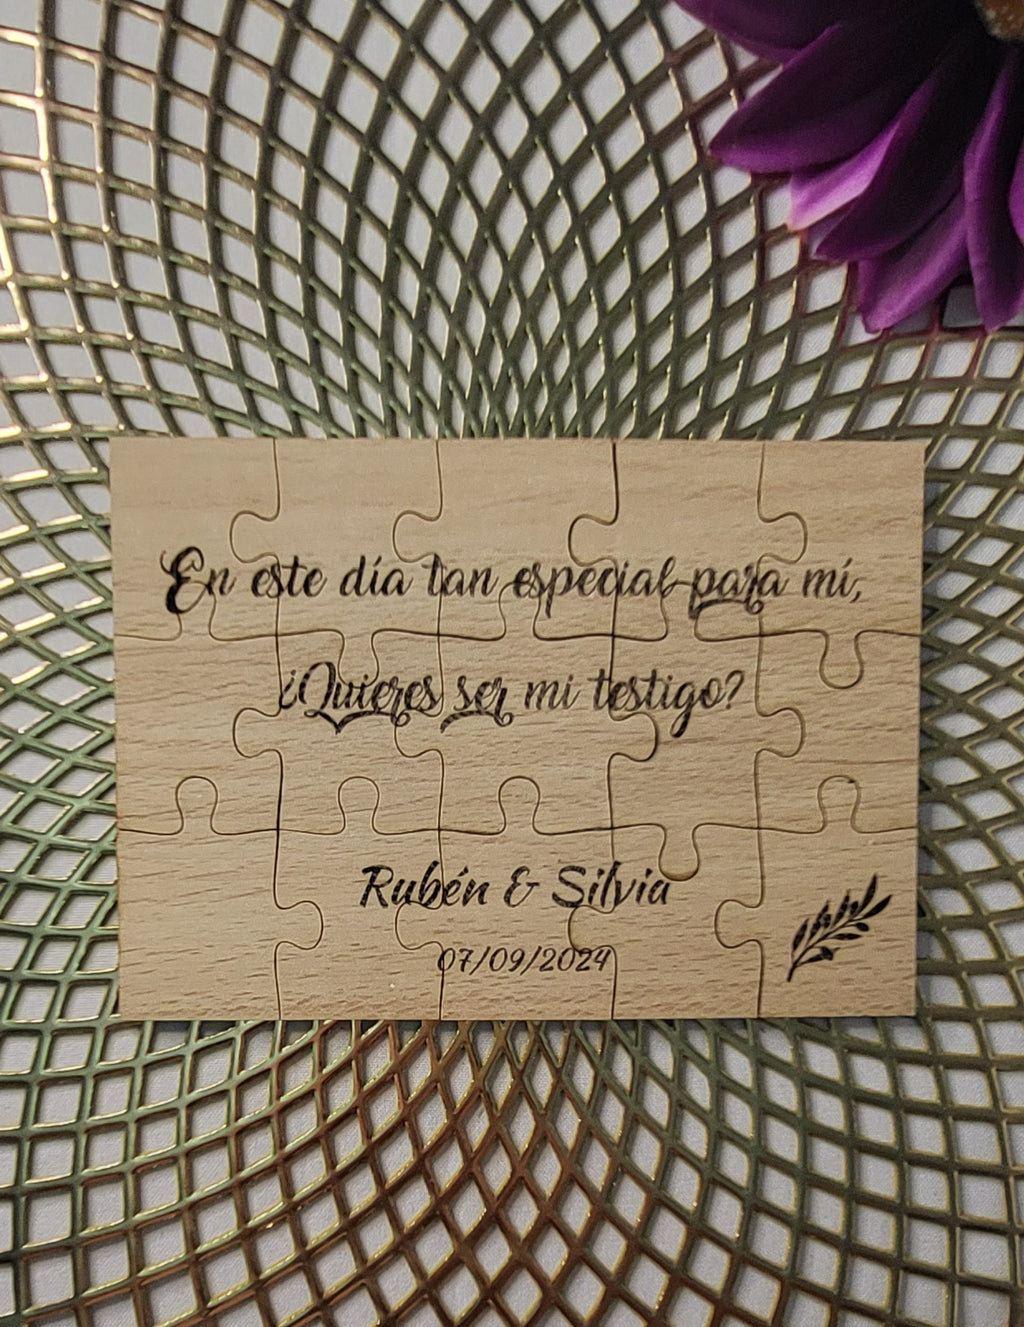 En este día tan especial para mí,
¿Quieres ser mi testigo?
Rubén & Silvia
07/09/2024